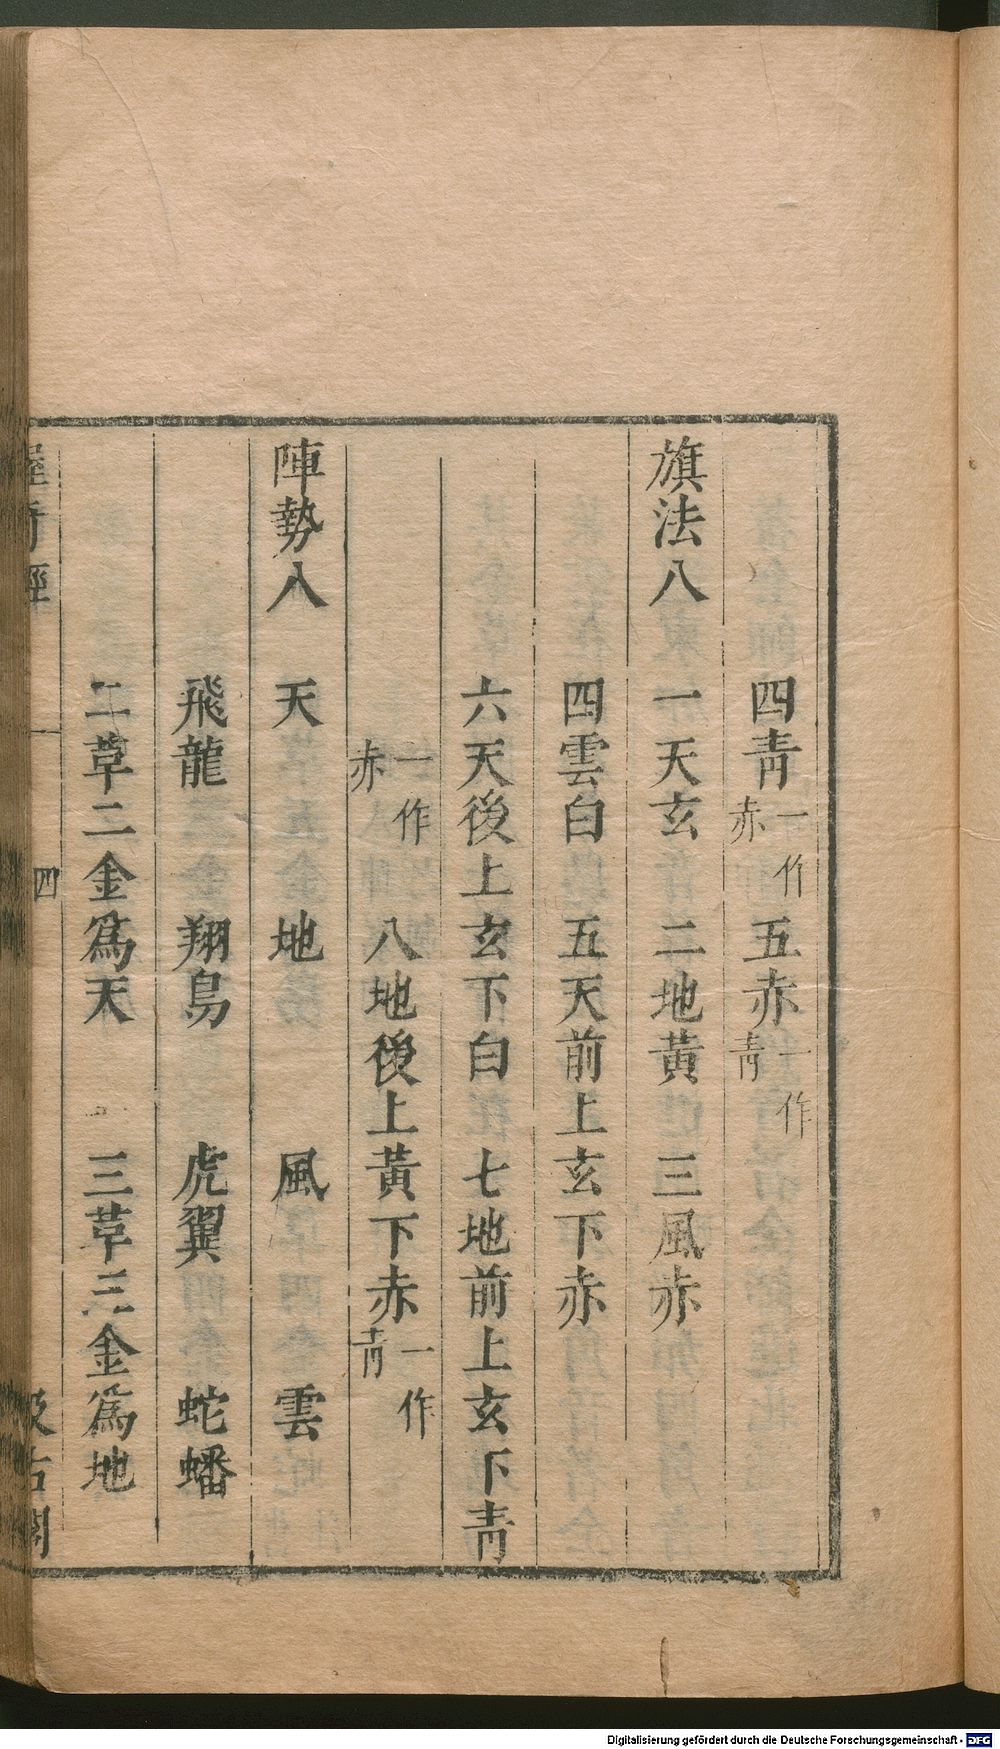 四青一作赤五赤一作青
旗法八 一天玄 二地黃 三風赤
四雲白 五天前上玄下赤
六天後上玄下白 七地前上玄下青
一作赤 八地後上黃下赤一作青
陣勢八 天 地 風 雲
飛龍 翔鳥 虎翼 蛇蟠
二革二金爲天 三革三金爲地
握奇經 四 汲古閣
Digitalisierung gefördert durch die Deutsche Forschungsgemeinschaft - DFG